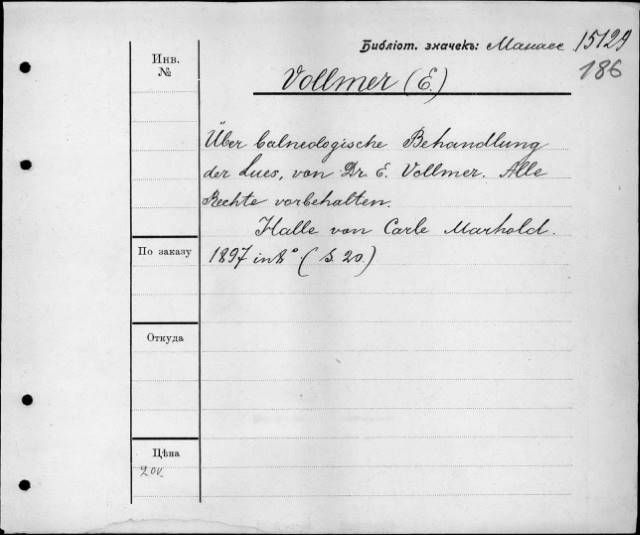 Библіот. значекъ: Манасс 15129
186
Инв. №
Vollmer (E.)
Über balneologische Behandlung
der Lues, von Dr. E. Vollmer. Alle
Rechte vorbehalten.
Halle von Carle Marhold.
По заказу
1897 in 8° (S. 20.)
Откуда
Цѣна